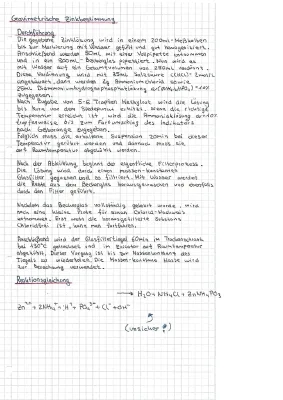 Gravimetrische Zinkbestimmung
Durchführung
Die gegebene Zinklösung wird in einem 200mL-Meßkolben
bis zur Markierung mit Wasser gefüllt und gut homogenisiert.
Anschließend werden 50mL mit einer Vollpipette entnommen
und in ein 500mL-Becherglas pipettiert. Nun wird es
mit Wasser auf ein Gesamtvolumen von 250mL verdünnt.
Diese Verdünnung wird mit Salzsäure
angesäuert, dann werden 2g Ammoniumchlorid sowie
25mL Diammoniumhydrogenphosphatlösung
zugegeben.
Nach Zugabe von 5-6 Tropfen Methylrot wird die Lösung
bis kurz vor dem Siedepunkt erhitzt. Wenn die richtige
Temperatur erreicht ist, wird die Ammoniaklösung
tropfenweise bis zum Farbumschlag des Indikators
nach Gelborange zugegeben.
muss die erhaltene Suspension 20min bei dieser
Temperatur gerührt werden und danach muss sie
auf Raumtemperatur abgekühlt werden.
Nach der Abkühlung beginnt der eigentliche Filterprozess.
Die Lösung wird durch einen massenkonstanten
Glasfilter gegossen und so filtriert. Mit Wasser werden
die Reste aus dem Becherglas herausgewaschen und ebenfalls
durch den Filter geführt.
Nachdem das Becherglas vollständig geleert wurde, wird
man eine kleine Probe für einen Chlorid-Nachweis
entnommen. Erst wenn die
Chloridfrei ist, kann man fortfahren.
Anschließend wird der Glasfiltertiegel 60min im Trockenschrank
bei 130°C getrocknet und im Exsikkator auf Raumtemperatur
abgekühlt. Dieser Vorgang ist bis zur Massenkonstanz des
Tiegels zu wiederholen. Die Massenkonstante Masse wird
zur Berechnung verwendet.
Reaktionsgleichung
→ H₂O + NH₄Cl + ZnNH₄PO₃
Zn²⁺ + 2NH₄⁺ + H⁺ + PO₄³⁻ + Cl⁻ + OH⁻
(unsicher?)